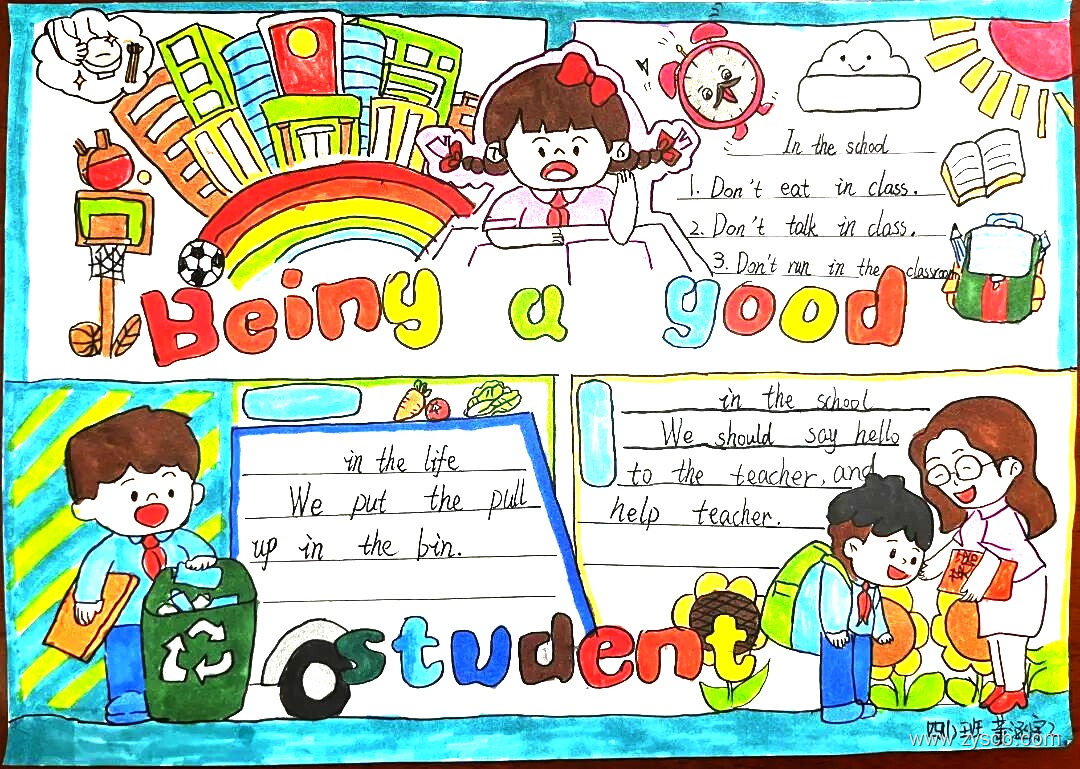 In the school
1. Don't eat in class.
2. Don't talk in class.
3. Don't run in the classroom
Being a good
in the life
We put the pull
up in the bin.
in the school
We should say hello
to the teacher, and
help teacher.
student
www.zysco.com